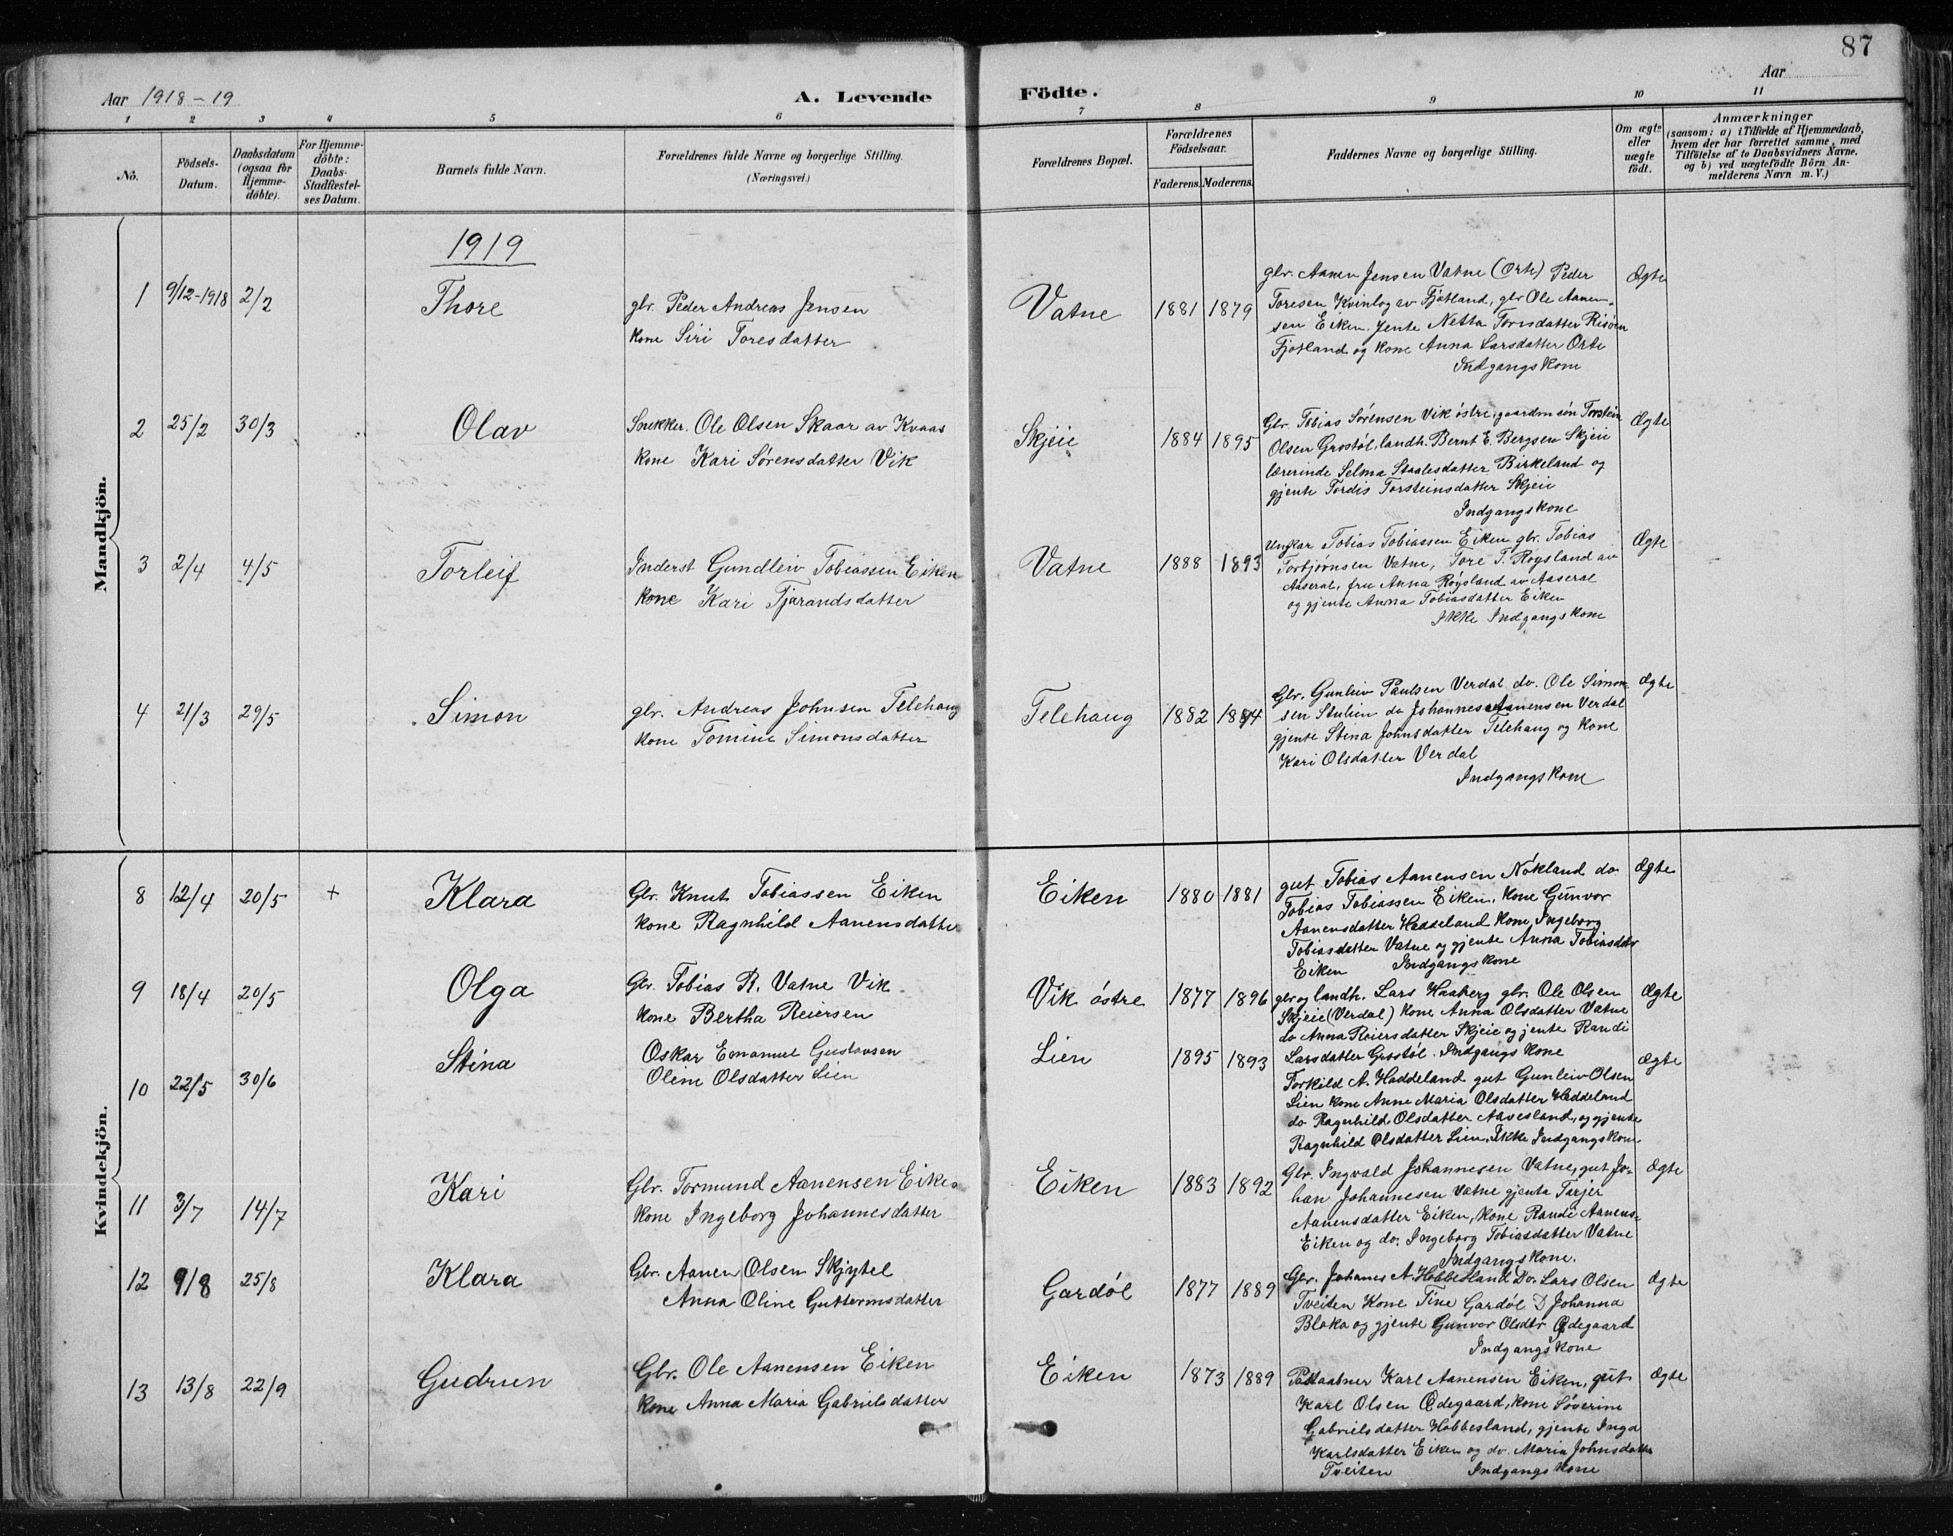 87
Aar 1918-19
A. Levende Födte.
Aar
1 2 3 4 5 6 7 8 9 10 11
No.
Födsels-Datum.
Daabsdatum (ogsaa for Hjemmedöbte).
For Hjemmedöbte: Daabs-Stadfæstelses Datum.
Barnets fulde Navn.
Forældrenes fulde Navne og borgerlige Stilling. (Næringsvei.)
Forældrenes Bopæl.
Forældrenes Födselsaar.
Faderens. Moderens.
Faddernes Navne og borgerlige Stilling.
Om ægte eller uægte födt.
Anmærkninger
(saasom: a) i Tilfælde af Hjemmedaab, hvem der har forrettet samme, med Tilföielse af to Daabsvidners Navne. og b) ved uægtefödte Börn Anmelderens Navn m. V.)
Mandkjön.
1919
1 9/12-1918 2/2 Thore
gbr. Peder Andreas Jensen
kone Siri Toresdatter
Vatne 1881 1879
gbr. Aanen Jensen Vatne (Orte) Peder
Toresen Kvinlog av Fjotland, gbr Ole Aanen-
sen Eiken. Jente Netta Torsdatter Risøen
Fjotland og kone Anna Larsdatter Orte
Indgangskone
Ægte
2 25/2 30/3 Olav
Snekker. Ole Olsen Skaar av Kvaas
kone Kari Sørensdatter Vik
Skjeie 1884 1895
Gbr. Tobias Sørensen Vik østre, gaardm søn Torstein
Olsen Grostøl, landh. Bernt E. Bergsen Skjeie
lærerinde Selma Staalesdatter Birkeland og
gjente Tordis Torsteinsdatter Skjeie
Indgangskone
Ægte
3 2/4 4/5 Torleif
Inderst Gundleiv Tobiassen Eiken
kone Kari Tjarandsdatter
Vatne 1888 1893
Ungkar Tobias Tobiassen Eiken gbr. Tobias
Torbjørnsen Vatne, Tore T. Røysland av
Aaseral, fru Anna Røysland av Aaseral
og gjente Anna Tobiasdatter Eiken
Ikke Indgangskone
Ægte
4 21/3 29/5 Simon
gbr. Andreas Johnsen Telehaug
kone Tomine Simonsdatter
Telehaug 1882 1884
Gbr. Gunleiv Paulsen Verdal do. Ole Simon-
sen Stulien do Johannes Aanensen Verdal
gjente Stina Johnsdatter Telehaug og kone
Kari Olsdatter Verdal
Indgangskone
Ægte
Kvindekjön.
8 12/4 20/5 + Klara
Gbr. Knut Tobiassen Eiken
kone Ragnhild Aanensdatter
Eiken 1880 1881
gut Tobias Aanensen Nökland do
Tobias Tobiassen Eiken, kone Gunvor
Aanensdatter Haddeland kone Ingeborg
Tobiasdatter Vatne og gjente Anna Tobiasdtr
Eiken Indgangskone
Ægte
9 18/4 20/5 Olga
Gbr. Tobias R. Vatne Vik
kone Bertha Reiersen
Vik østre 1877 1896
gbr og landh. Lars Haaberg gbr. Ole Olsen
Skjeie (Verdal) kone Anna Olsdatter Vatne
do Anna Reiersdatter Skjeie og jente Randi
Larsdatter Grostøl. Indgangskone
Ægte
10 22/5 30/6 Stina
Oskar Emanuel Gustavsen
Oline Olsdatter Lien
Lien 1895 1893
Torkild A. Haddeland gut Gunleiv Olsen
Lien kone Anne Maria Olsdatter Haddeland
do Ragnhild Olsdatter Aasesland, og gjente
Ragnhild Olsdatter Lien. Ikke Indgangskone
Ægte
11 3/7 14/7 Kari
Gbr. Tormund Aanensen Eiken
kone Ingeborg Johannesdatter
Eiken 1883 1892
Gbr. Ingvald Johannesen Vatne, gut Jo-
han Johannesen Vatne gjente Tirjer
Aanensdatter Eiken, kone Randi Aanens-
Eiken og do. Ingeborg Tobiasdatter Vatne
Indgangskone.
Ægte
12 9/8 25/8 Klara
Gbr. Aanen Olsen Skjytel
Anna Oline Guttormsdatter
Gardøl 1877 1889
Gbr. Johanes A. Hobbesland Do. Lars Olsen
Tveiten Kone Tine Gardøl D Johanna
Blaka og gjente Gunvor Olsdtr Ødegaard
Indgangskone
Ægte
13 13/8 22/9 Gudrun
Gbr. Ole Aanensen Eiken
kone Anna Maria Gabrielsdatter
Eiken 1873 1889
Postaabner Karl Aanensen Eiken, gut
Karl Olsen Ødegaard, kone Søverine
Gabrielsdatter Hobbesland, gjente Inga
Karlsdatter Eiken og do. Maria Johnsdatter
Tveiten Indgangskone
Ægte